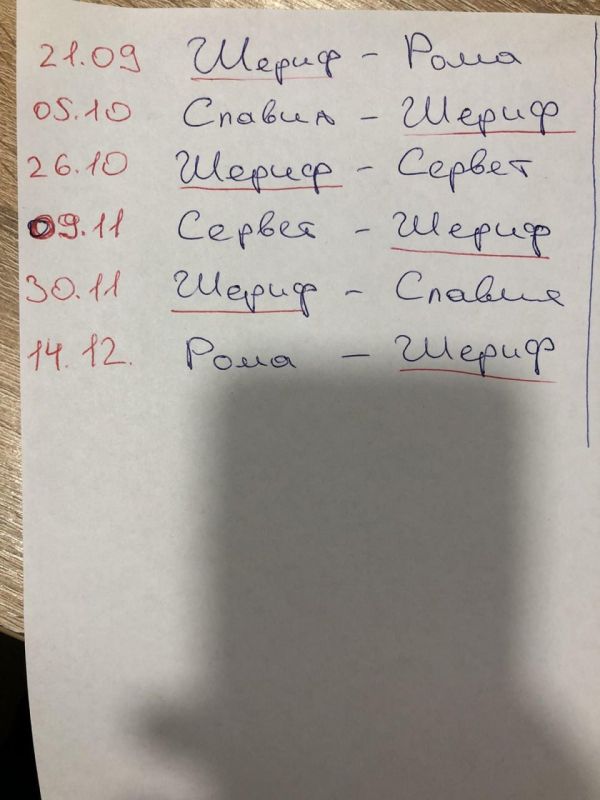 21.09 Шериф - Рома
05.10 Славия - Шериф
26.10 Шериф - Сервет
09.11 Сервет - Шериф
30.11 Шериф - Славия
14.12. Рома - Шериф